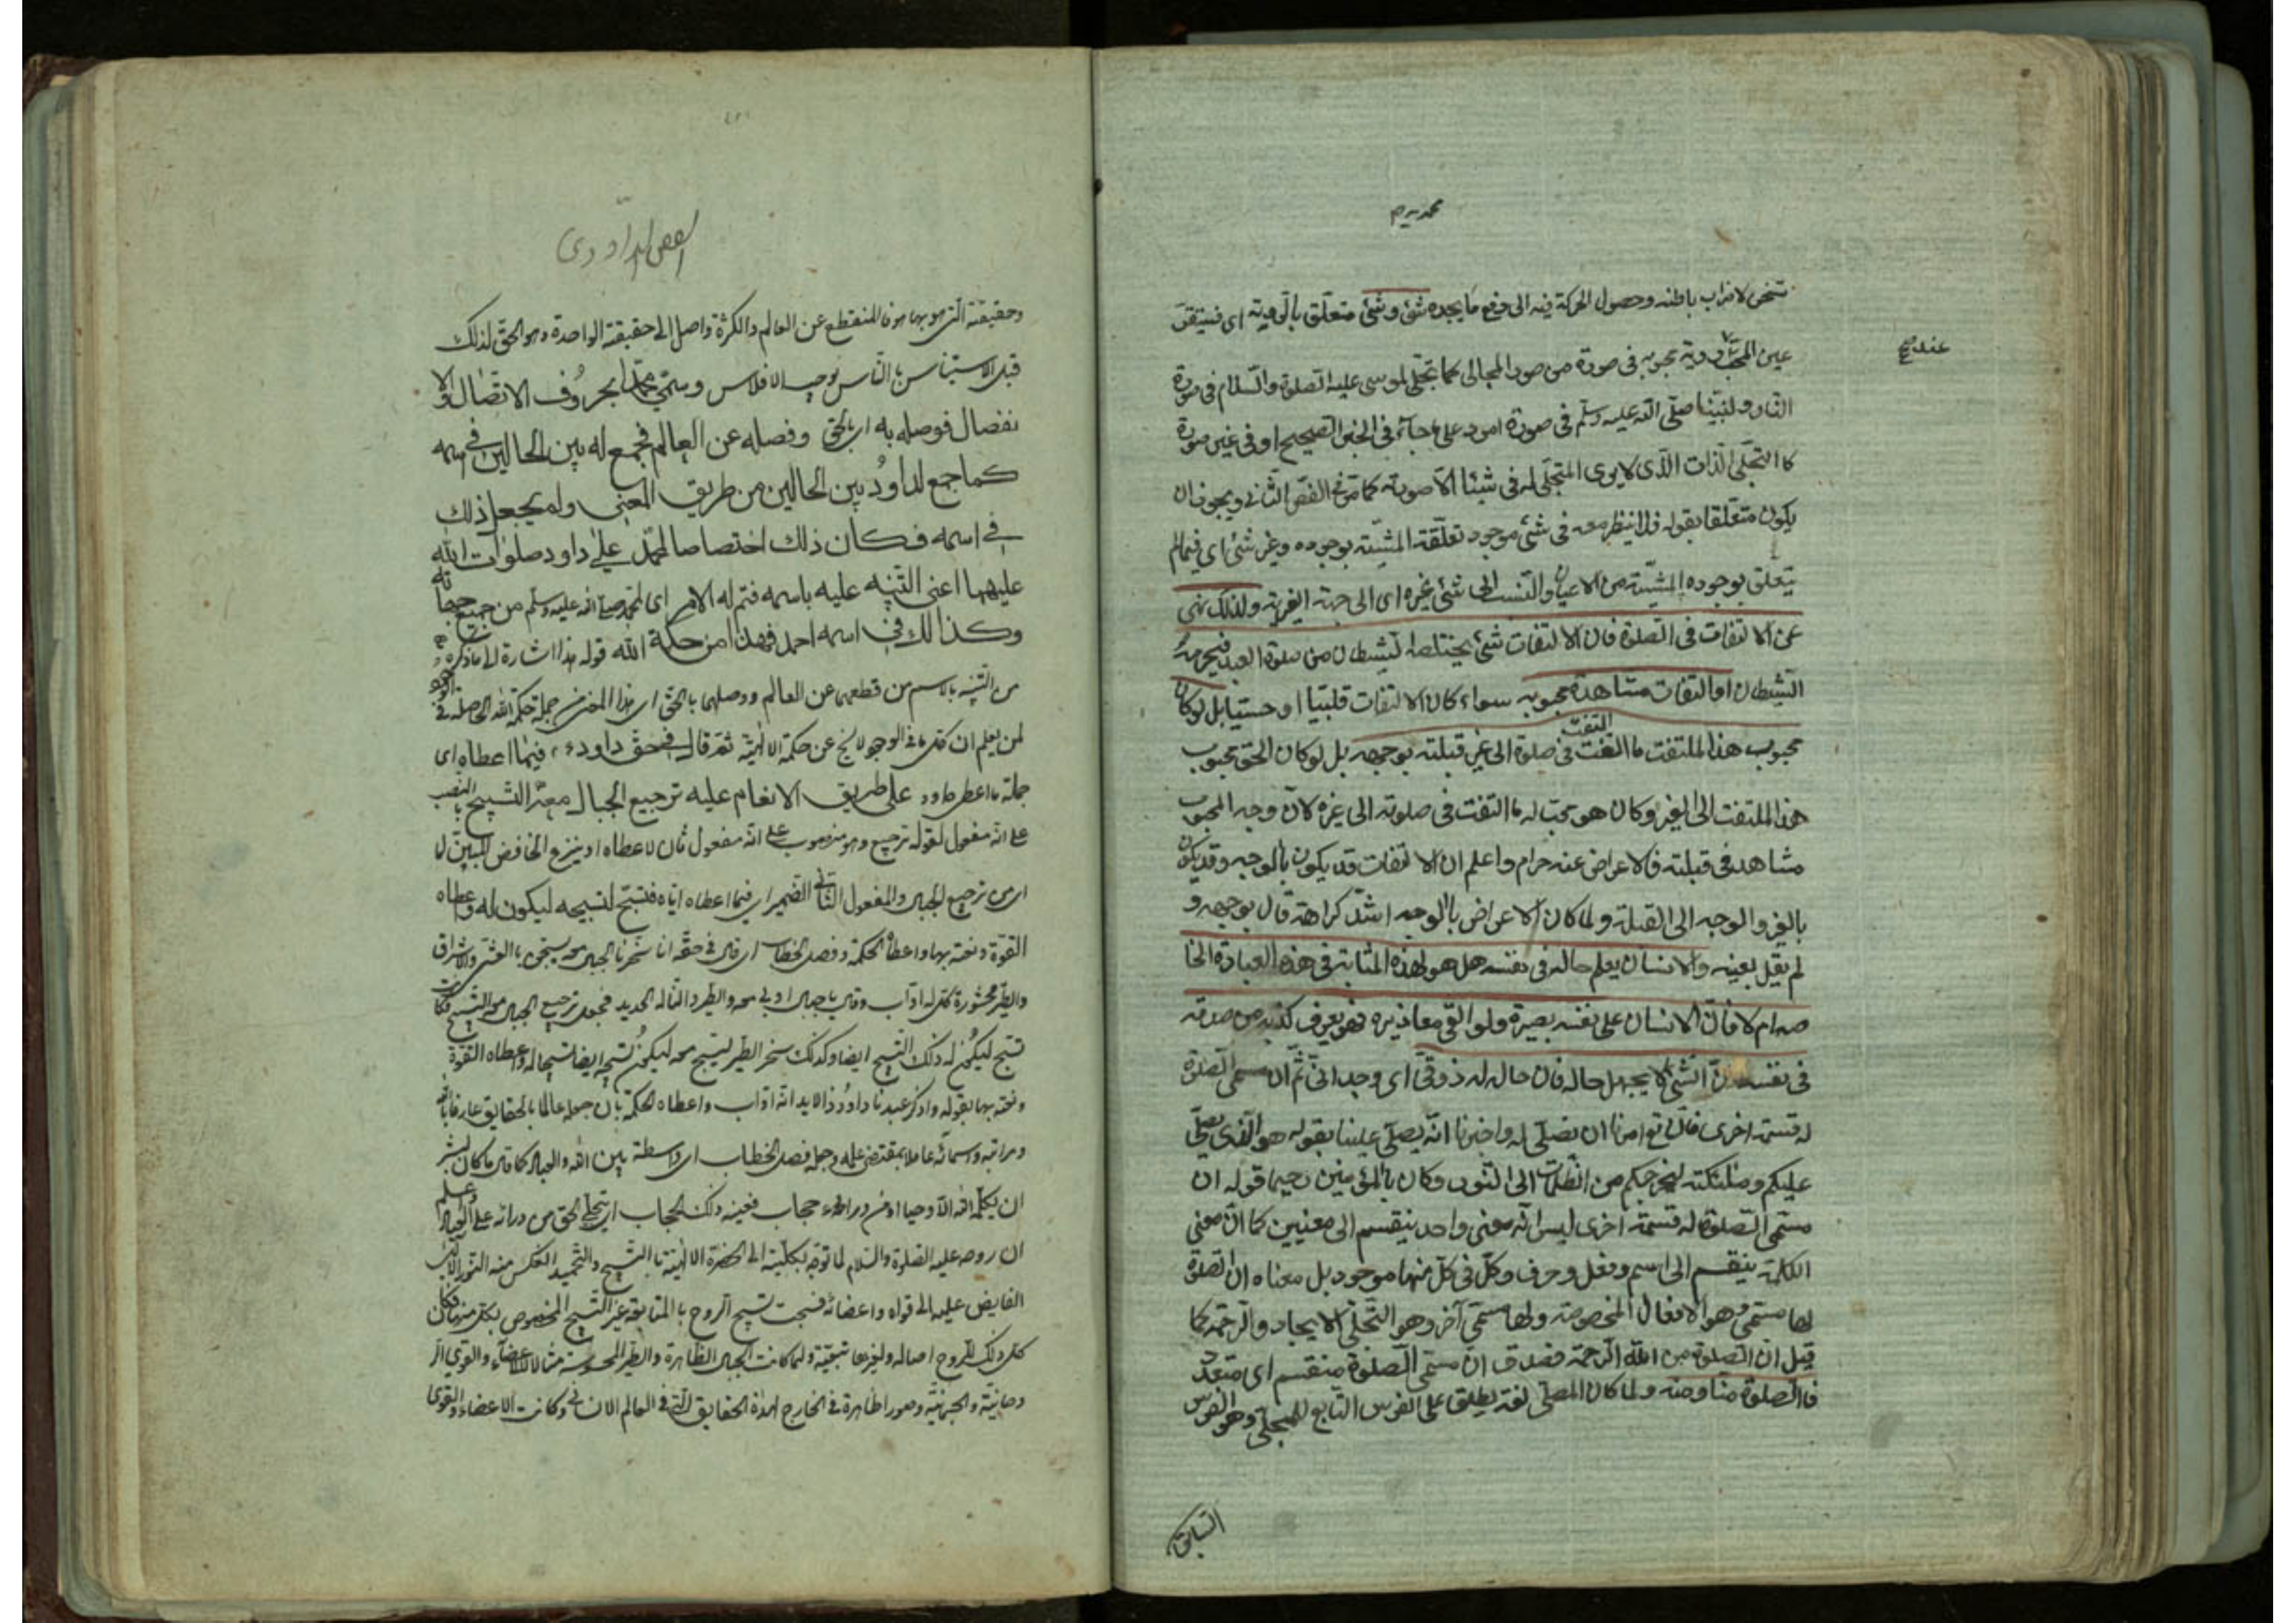 محمديه م
شخص لاضراب باطنه وحصول الحركة فيه الى دفع ما يجده شئ وشئ متعلق بالرؤية اى فتستقر
عند
عين المحب برؤية محبوبه فى صورة من صور المجالى كما تجلى لموسى عليه الصلوة والسلام فى صورة
النار ولنبينا صلى الله عليه وسلم فى صورة امرد على ما جاء فى الخبر الصحيح او فى غير صورة
كالتجلى الذات الذى لا يرى المتجلى له فى شيئا الا صورته كما مر فى الفص الثانى ويجوز ان
يكون متعلقا بقوله فلا ينظر معه فى شئ موجود تعلقت المشيئة بوجوده وغير شئ اى فيما لم
يتعلق بوجوده المشيئة من الاعيان والنسب الى شئ غيره اى الى جهة الغيرية ولذلك نهى
عن الالتفات فى الصلوة فان الالتفات شئ يختلسه الشيطان من صلوة العبد فيحرمه
الشيطان او التفات مشاهدة محبوبه سواء كان الالتفات قلبيا او حسيا بل لو كان
محبوب هذا الملتفت ما التفت فى صلوة الى غير قبلته بوجهه بل لو كان الحق محبوب
هذا الملتفت الى الغير وكان هو محب له ما التفت فى صلوته الى غيره لان وجه المحبوب
مشاهد فى قبلته فالاعراض عنه حرام واعلم ان الالتفات قد يكون بالوجه وقد يكون
بالغير والوجه الى القبلة ولما كان الاعراض بالوجه اشد كراهة قال بوجهه و
لم يقل بعينه والانسان يعلم حاله فى نفسه هل هو بهذه المثابة فى هذه العبادة الخا
صه ام لا فان الانسان على نفسه بصيرة ولو القى معاذيره فهو يعرف كذبه من صدقه
فى نفسه لان الشئ لا يجهل حاله فان حاله له ذوقى اى وجدانى ثم ان مسمى الصلوة
له قسمة اخرى فانه تع امرنا ان نصلى له واخبرنا انه يصلى علينا بقوله هو الذى يصلى
عليكم وملئكته ليخرجكم من الظلمات الى النور وكان بالمؤمنين رحيما قوله ان
مسمى الصلوة له قسمة اخرى ليس انه معنى واحد ينقسم الى معنيين كما ان معنى
الكلمة ينقسم الى اسم وفعل وحرف وكل فى كل منها موجود بل معناه ان الصلوة
لها مسمى وهو الافعال المخصوصة ولها مسمى آخر وهو التجلى الايجاد والرحمة كما
قيل ان الصلوة من الله الرحمة فصدق ان مسمى الصلوة منقسم اى متعدد
فالصلوة منا ومنه ولما كان المصلى لغة يطلق على الفرس التابع للمجلى وهو الفرس
السابق
الفص الداودى
وحقيقته التى هو بها هو فالمنقطع عن العالم والكثرة واصل الى حقيقة الواحدة وهو الحق لذلك
قيل الاستيناس بالناس يوجب الافلاس وسمى محمدا بحروف الاتصال والا
نفصال فوصله به اى بالحق وفصله عن العالم فجمع له بين الحالين فى اسمه
كما جمع لداود بين الحالين من طريق المعنى ولم يجعل ذلك
فى اسمه فكان ذلك اختصاصا لمحمد على داود صلوات الله
عليهما اعنى التنبيه عليه باسمه فتم له الامر اى لمحمد صلى الله عليه وسلم من جميع جهاته
وكذلك فى اسمه احمد فهذا من حكمة الله قوله هذا اشارة الى ما ذكره
من التنبيه بالاسم من قطعهما عن العالم ووصلهما بالحق اى هذا المعنى من جملة حكمة الله الحاصلة فى
لمن يعلم ان كل ما فى الوجود لا يخ عن حكمة الالهية ثم قال فى حق داود فيما اعطاه اى
جملة ما اعطى داود على طريق الانعام عليه ترجيع الجبال معه التسبيح بالنصب
على انه مفعول لقوله ترجيع وهو منصوب على انه مفعول ثان لاعطاه او بنزع الخافض المبين ل
اى من ترجيع الجبال والمفعول الثانى الضمير اى فيما اعطاه اياه فتسبح لتسبيحه ليكون له واعطاه
القوة ونعته بها واعطاه الحكمة وفصل الخطاب اى قال فى حقه انا سخرنا الجبال معه يسبحن بالعشى والاشراق
والطير محشورة كل له اواب وقال يا جبال اوبى معه والطير والنا له الحديد فجعل ترجيع الجبال معه التسبيح فكانت
تسبح ليكون له ذلك التسبيح ايضا وكذلك سخر الطير ليسبح معه ليكون تسبيحه ايضا تسبيحا له واعطاه القوة
ونعته بها بقوله واذكر عبدنا داود ذا الايد انه اواب واعطاه الحكمة بان جعله عالما بالحقايق عارفا بالله
ومراتبه واسمائه عاملا بمقتضى علمه وجعله فصل الخطاب اى واسطة بين الله والعباد كما قال ما كان لبشر
ان يكلمه الله الا وحيا او من وراء حجاب فعينه ذلك الحجاب اى تجلى الحق من ورائه على العباد واعلم
ان روحه عليه الصلوة والسلام لما توجه بكليته الى الحضرة الالهية بالتسبيح والتحميد انعكس منه النور الالهى
الفايض عليه الى قواه واعضائه فسبحت تسبيح الروح بالمتابعة غير التسبيح المخصوص بكل منها فكان
كل ذلك للروح اصالة ولغيرها تبعية ولما كانت الجبال الظاهرة والطير المحسوسة مثالا للاعضاء والقوى الر
وحانية والجسمانية وصورا ظاهرة فى الخارج لهذه الحقايق التى فى العالم الانسانى وكانت الاعضاء والقوى